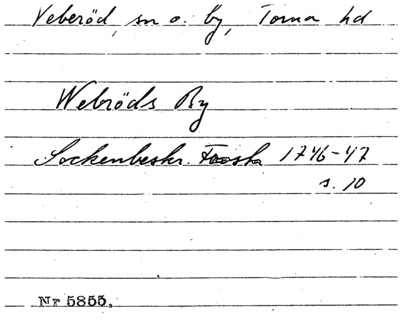 Veberöd, sn o. by, Torna hd
Webröds By
Sockenbeskr. 1746-47
s. 10
Nr 5855,